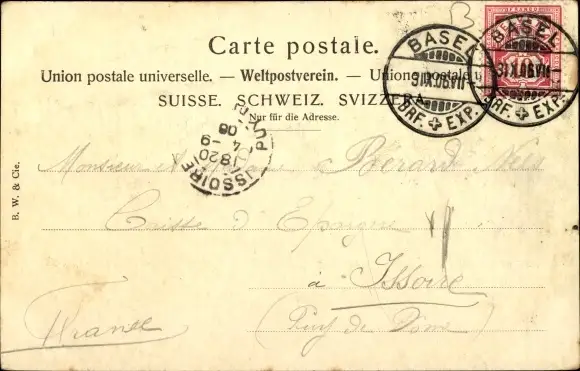 Carte postale.
Union postale universelle. — Weltpostverein. — Unione postale u
SUISSE. SCHWEIZ. SVIZZERA.
Nur für die Adresse.
B
FRANCO
BASEL
BRF. EXP.
BASEL
BRF. EXP.
ISSOIRE
PUY
B. W. & Cie.
Monsieur et Madame Bérard
Caisse d'Epargne
à Issoire
(Puy de Dôme)
France